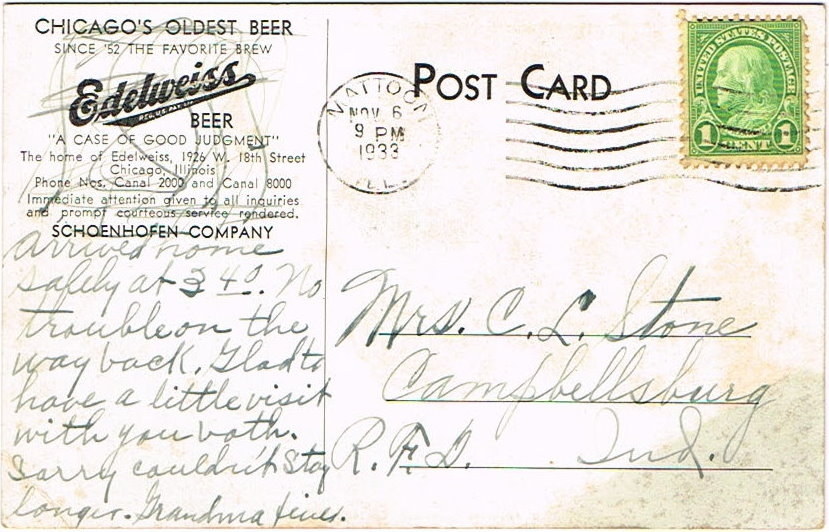 CHICAGO'S OLDEST BEER
SINCE '52 THE FAVORITE BREW
Edelweiss
REG. U.S. PAT. OFF.
BEER
"A CASE OF GOOD JUDGMENT"
The home of Edelweiss, 1926 W. 18th Street
Chicago, Illinois
Phone Nos. Canal 2000 and Canal 8000
Immediate attention given to all inquiries
and prompt courteous service rendered.
SCHOENHOFEN COMPANY
arrived home
safely at 3 40. No
trouble on the
way back. Glad to
have a little visit
with you both.
Sorry couldn't stay
longer. Grandma fine.
MATTOON
NOV 6
9 PM
1933
ILL.
POST CARD
UNITED STATES POSTAGE
1 CENT 1
Mrs. C. L. Stone
Campbellsburg
R. F. D. Ind.